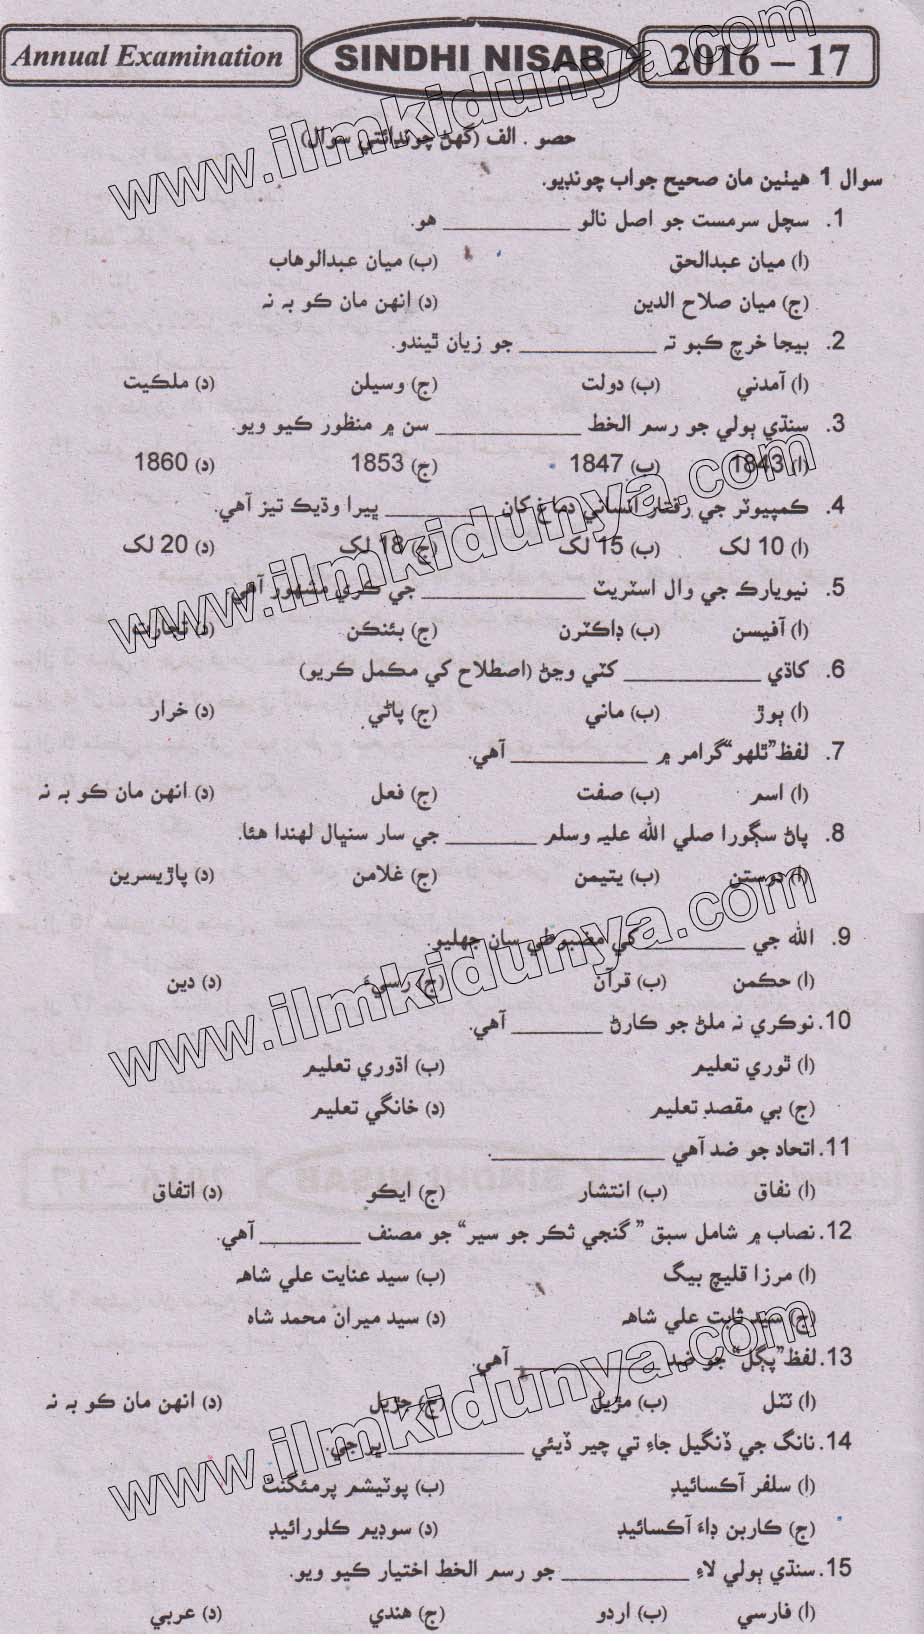 Annual Examination SINDHI NISAB 2016 – 17
حصو . الف (گھڻ چونڊائتي سوال)
سوال 1 هيٺين مان صحيح جواب چونڊيو.
1. سچل سرمست جو اصل نالو __________ هو.
(ا) ميان عبدالحق (ب) ميان عبدالوهاب
(ج) ميان صلاح الدين (د) انهن مان ڪو به نه
2. بيجا خرچ ڪبو ته __________ جو زيان ٿيندو.
(ا) آمدني (ب) دولت (ج) وسيلن (د) ملڪيت
3. سنڌي ٻولي جو رسم الخط __________ سن ۾ منظور ڪيو ويو.
(ا) 1843 (ب) 1847 (ج) 1853 (د) 1860
4. ڪمپيوٽر جي رفتار انساني دماغ کان __________ ڀيرا وڌيڪ تيز آهي.
(ا) 10 لک (ب) 15 لک (ج) 18 لک (د) 20 لک
5. نيويارڪ جي وال اسٽريٽ __________ جي ڪري مشهور آهي
(ا) آفيسن (ب) ڊاڪٽرن (ج) بئنڪن (د) تجارت
6. کاڌي __________ کٽي وڃڻ (اصطلاح کي مڪمل ڪريو)
(ا) ٻوڙ (ب) ماني (ج) پاڻي (د) خرار
7. لفظ”ٿلهو“گرامر ۾ __________ آهي.
(ا) اسم (ب) صفت (ج) فعل (د) انهن مان ڪو به نه
8. پاڻ سڳورا صلي الله عليه وسلم __________ جي سار سنڀال لهندا هئا.
(ا) دوستن (ب) يتيمن (ج) غلامن (د) پاڙيسرين
9. الله جي __________ کي مضبوطي سان جهليو.
(ا) حڪمن (ب) قرآن (ج) رسيءَ (د) دين
10. نوڪري نه ملڻ جو ڪارڻ __________ آهي.
(ا) ٿوري تعليم (ب) اڌوري تعليم
(ج) بي مقصد تعليم (د) خانگي تعليم
11. اتحاد جو ضد آهي __________.
(ا) نفاق (ب) انتشار (ج) ايڪو (د) اتفاق
12. نصاب ۾ شامل سبق ” گنجي ٽڪر جو سير“ جو مصنف __________ آهي.
(ا) مرزا قليچ بيگ (ب) سيد عنايت علي شاهه
(ج) سيد ثابت علي شاهه (د) سيد ميران محمد شاه
13. لفظ”ڀڳل“ جو ضد __________ آهي.
(ا) ٽٽل (ب) مڙيل (ج) جڙيل (د) انهن مان ڪو به نه
14. نانگ جي ڏنگيل جاءِ تي چير ڏيئي __________ ڀرجي.
(ا) سلفر آڪسائيڊ (ب) پوٽيشم پرمئگنٽ
(ج) ڪاربن ڊاءِ آڪسائيڊ (د) سوڊيم ڪلورائيڊ
15. سنڌي ٻولي لاءِ __________ جو رسم الخط اختيار ڪيو ويو.
(ا) فارسي (ب) اردو (ج) هندي (د) عربي
www.ilmkidunya.com
www.ilmkidunya.com
www.ilmkidunya.com
www.ilmkidunya.com